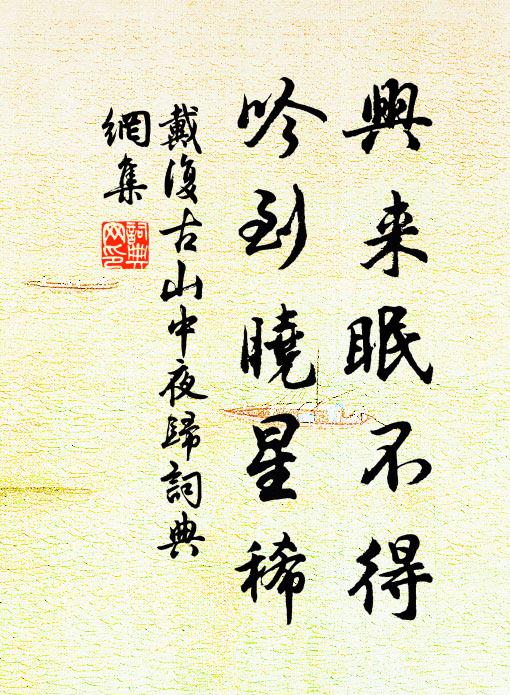 興来眠不得
吟到曉星稀
戴復古山中夜歸詞典
網集
詞典
网印